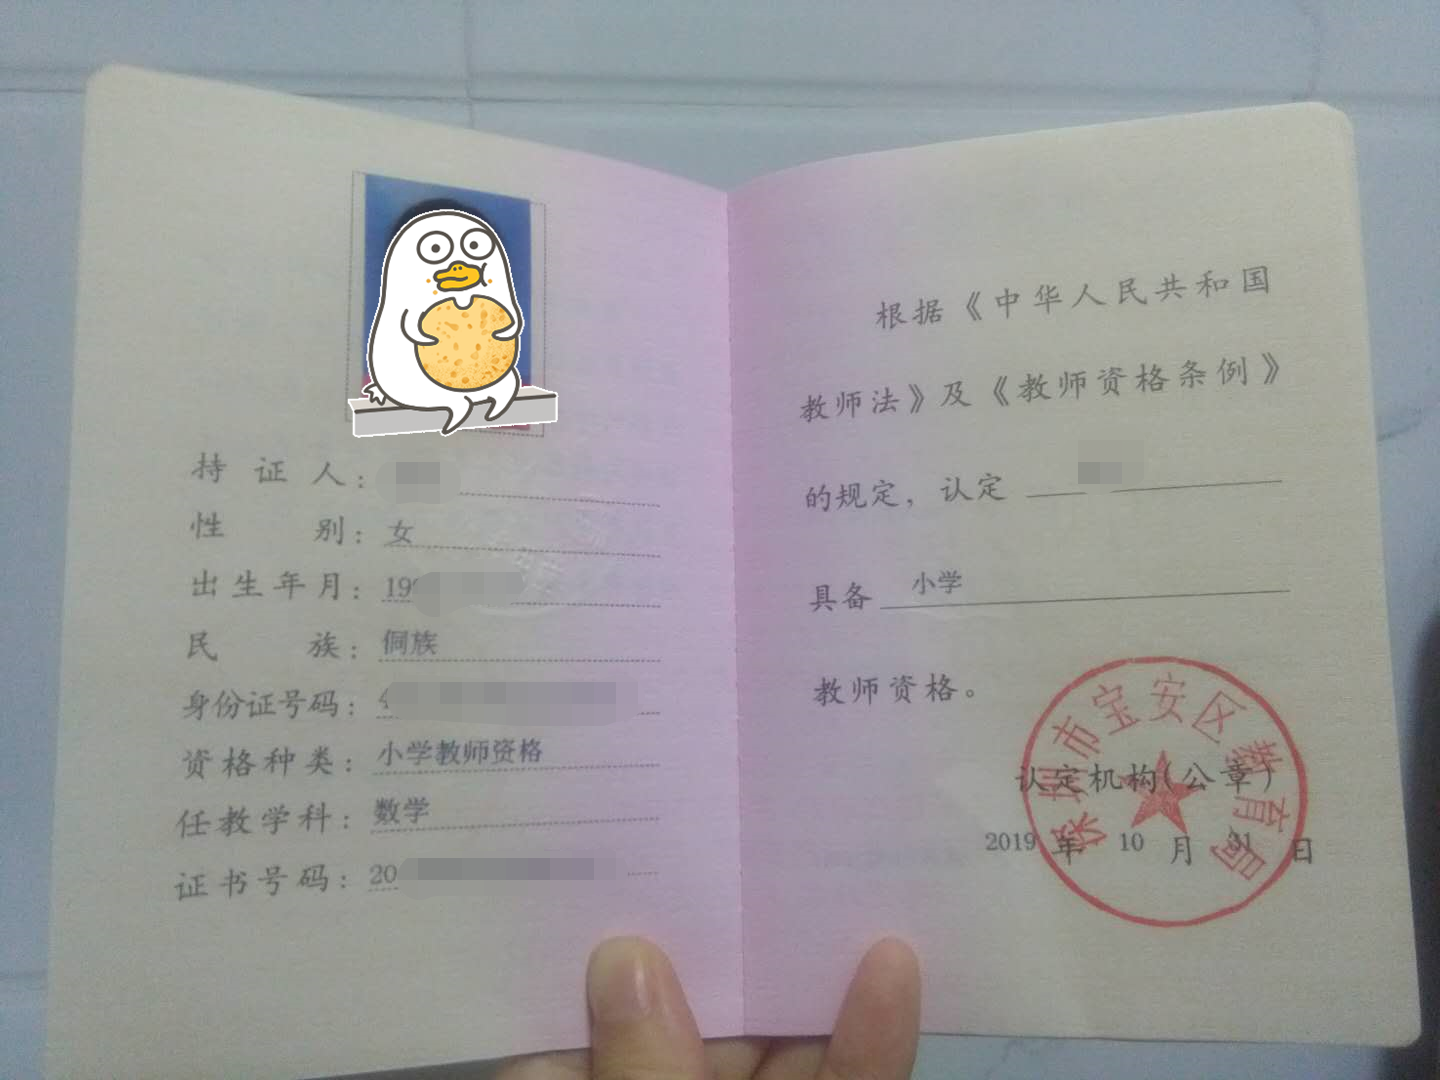 持证人：
性别：女
出生年月：19
民族：侗族
身份证号码：4
资格种类：小学教师资格
任教学科：数学
证书号码：20
根据《中华人民共和国
教师法》及《教师资格条例》
的规定，认定
具备 小学
教师资格。
深圳市宝安区教育局
认定机构（公章）
2019 年 10 月 31 日